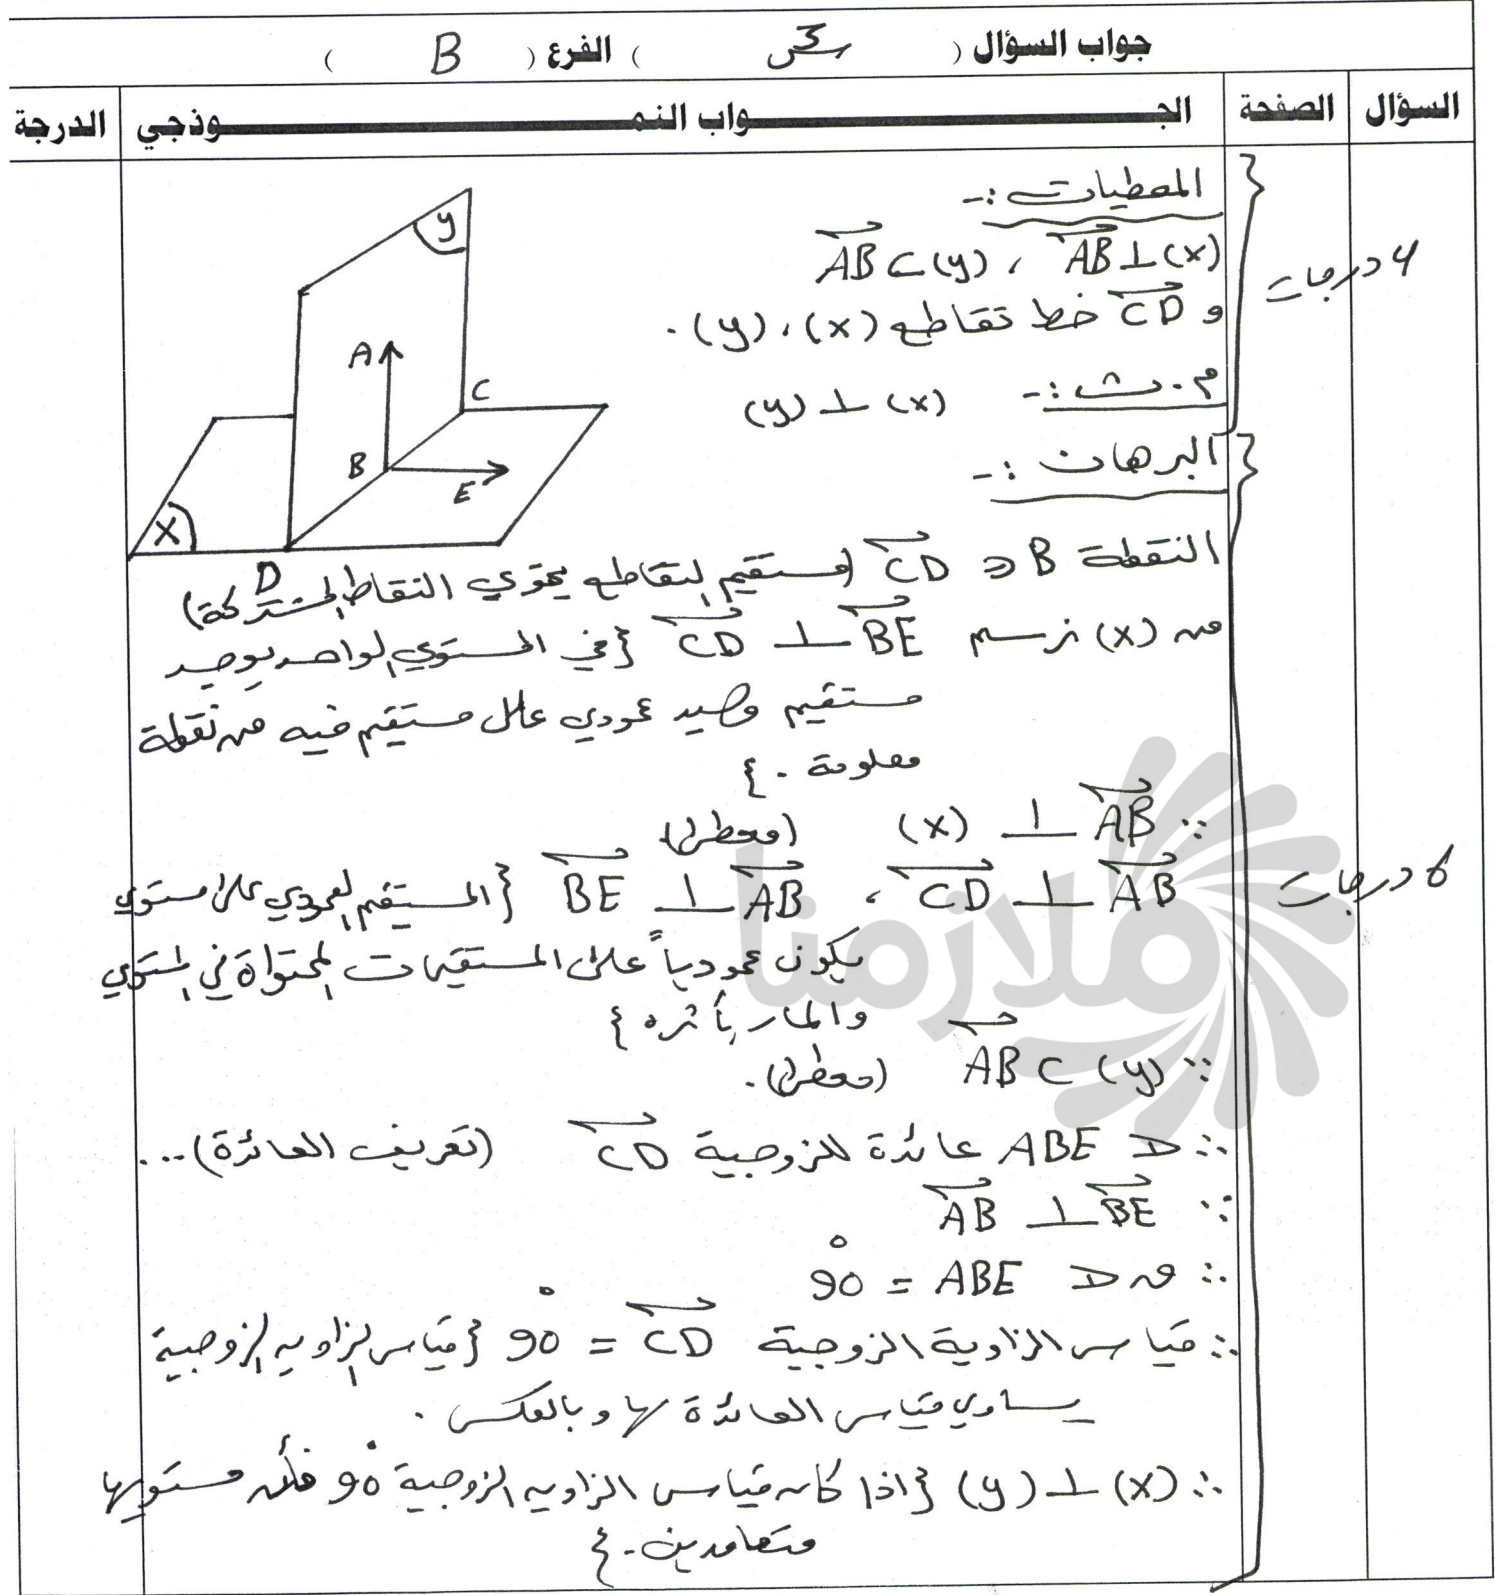 جواب السؤال ( س3 ) الفرع ( B )
السؤال الصفحة الجـــواب النمـــوذجي الدرجة
المعطيات :-
AB ⊂ (y) ، AB ⊥ (x)
و CD خط تقاطع (x) ، (y) .
4 درجات
م . ث :- (y) ⊥ (x)
البرهان :-
y
A
C
B
E
x
D
النقطة B ∈ CD (مستقيم التقاطع يحوي النقاط المشتركة)
من (x) نرسم BE ⊥ CD {في المستوي الواحد يوجد
مستقيم وحيد عمودي على مستقيم فيه من نقطة
معلومة . }
∵ AB ⊥ (x) (معطى)
AB ⊥ CD ، AB ⊥ BE {المستقيم العمودي على مستوي
6 درجات
يكون عمودياً على المستقيمات المحتواة في المستوي
والمار بأثره }
∵ AB ⊂ (y) (معطى) .
∴ ∢ ABE عائدة للزوجية CD (تعريف العائدة) ...
∵ AB ⊥ BE
∴ ق ∢ ABE = 90°
∴ قياس الزاوية الزوجية CD = 90° {قياس الزاوية الزوجية
يساوي قياس العائدة لها وبالعكس .
∴ (x) ⊥ (y) {اذا كان قياس الزاوية الزوجية 90° فأن مستويها
متعامدين . }
ملازمنا